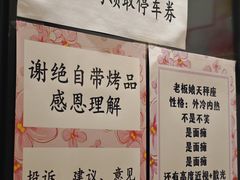 领取停车券
谢绝自带烤品
感恩理解
投诉、建议、意见
老板娘天秤座
性格：外冷内热
不是不笑
是面瘫
是面瘫
是面瘫
还有高度近视+散光